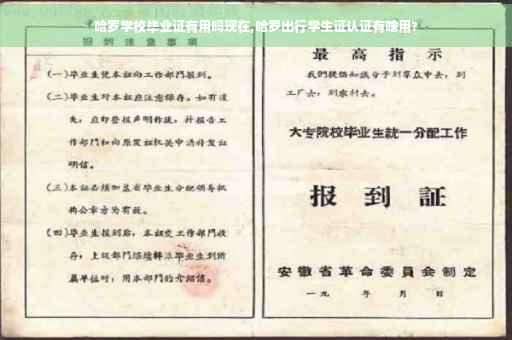 哈罗学校毕业证有用吗现在,哈罗出行学生证认证有啥用?
报到注意事项
(一)毕业生凭本证向工作部門报到。
(二)毕业生对本证应注意保存。如有遗
失,应即登报声明作废,并报告工
作部門和向原发证机关申請补发证
明信。
(三)本证必須加盖省毕业生分配領导机
构公章方为有效。
(四)毕业生报到后,本证交工作部門收
存;上級部門继續轉派毕业生到所
属单位时,用本部門的介紹信。
最高指示
我們提倡知識分子到羣众中去,到
工厂去,到农村去。
大专院校毕业生統一分配工作
报到証
安徽省革命委員会制定
一九 年 月 日